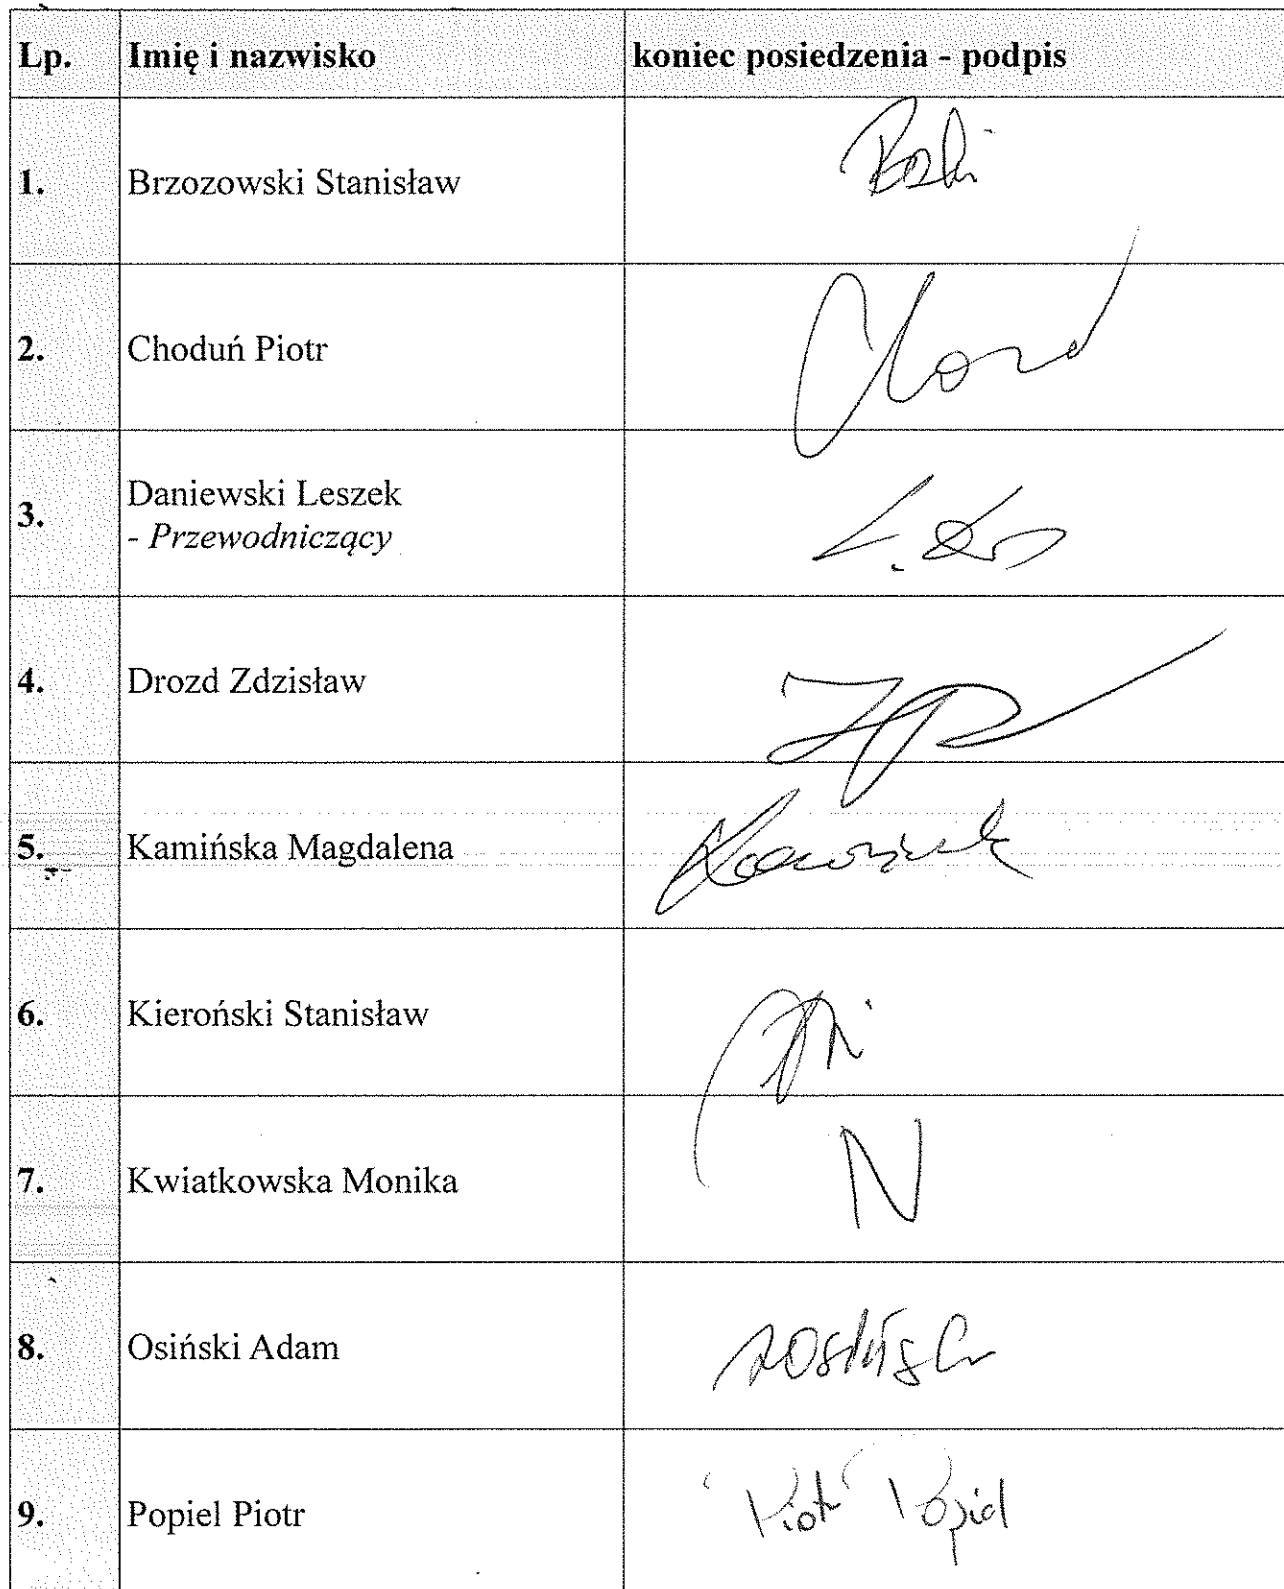 Lp. Imię i nazwisko koniec posiedzenia - podpis
1. Brzozowski Stanisław
2. Choduń Piotr
3. Daniewski Leszek
- Przewodniczący
4. Drozd Zdzisław
5. Kamińska Magdalena
6. Kieroński Stanisław
7. Kwiatkowska Monika N
8. Osiński Adam
9. Popiel Piotr Piotr Popiel